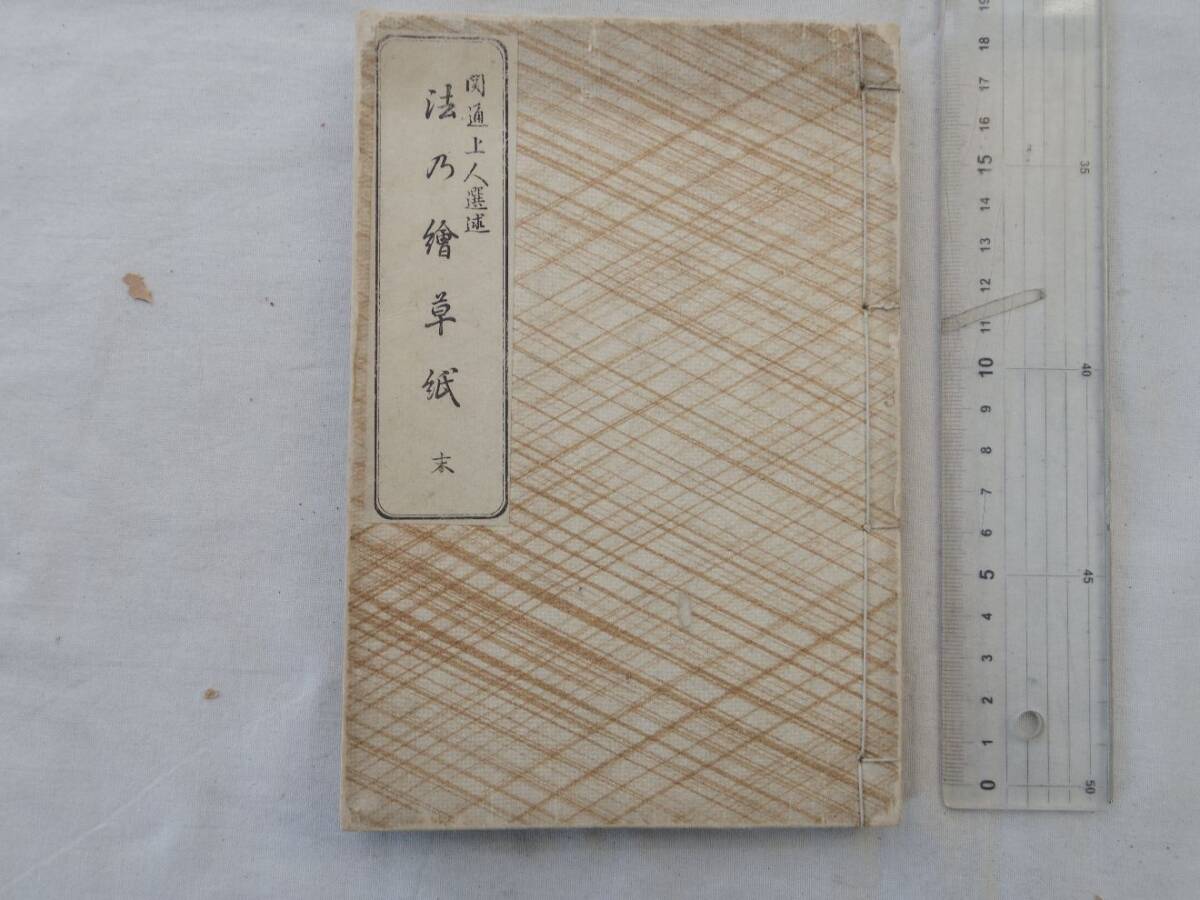 関通上人選述
法乃繪草紙 末
19
18
17
16
15
14
13
12
11
10
9
8
7
6
5
4
3
2
1
0
35
40
45
50